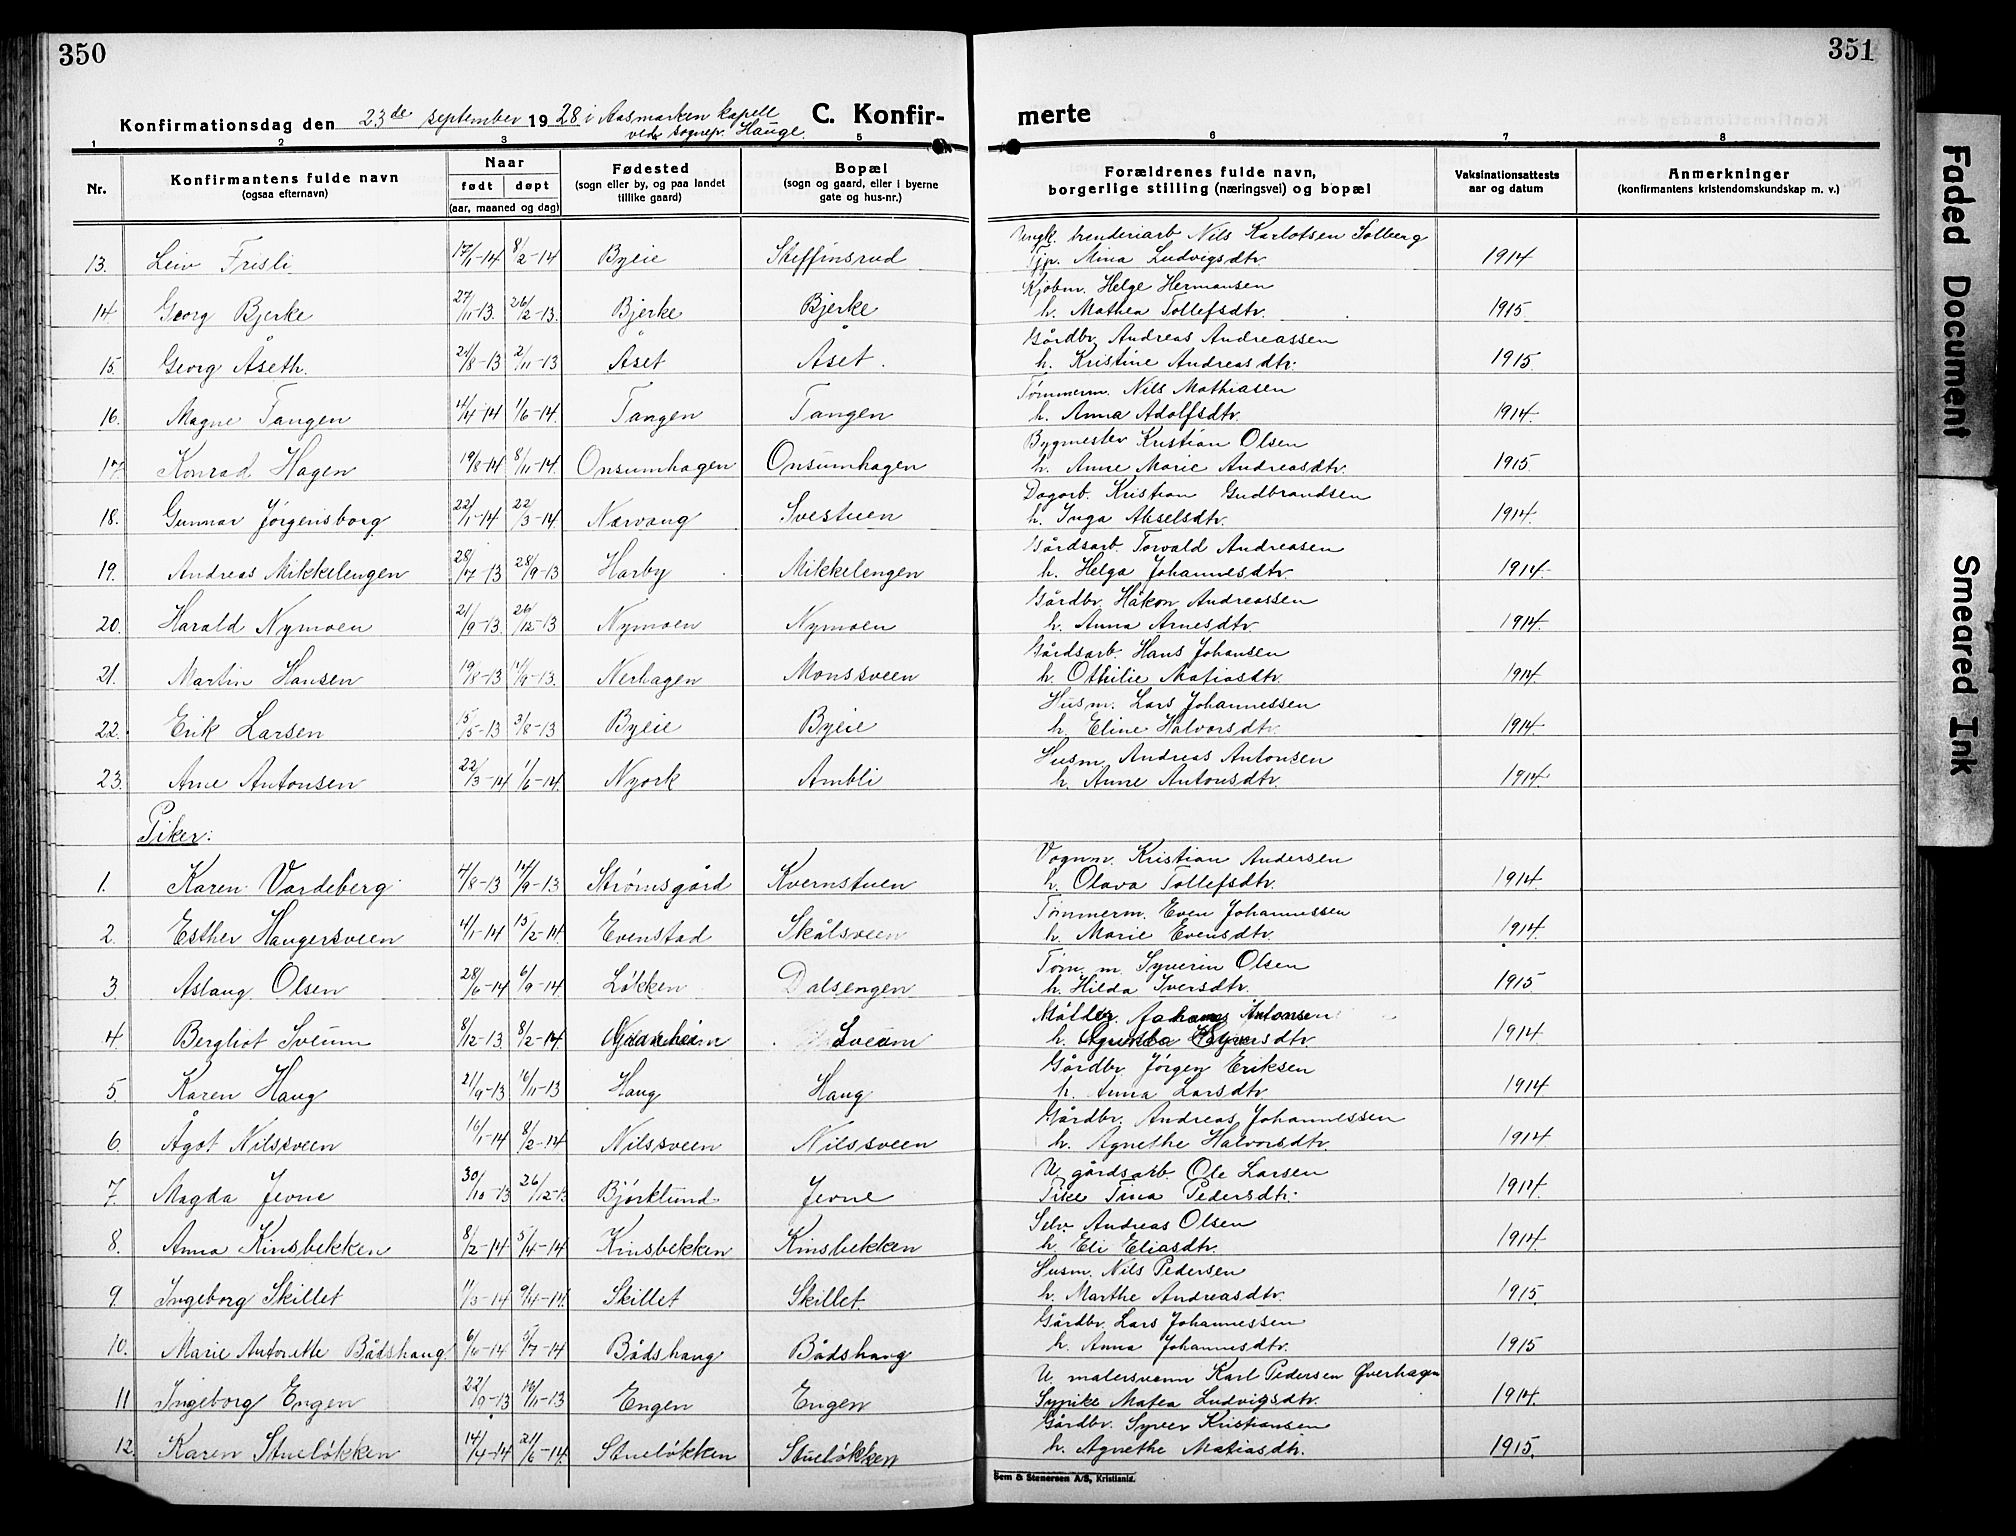 350
351
Konfirmationsdag den 23de september 1928 i Aasmarken kapell
ved sognepr. Hauge.
C. Konfir-
merte
1 2 3 5 6 7 8
Nr.
Konfirmantens fulde navn
(ogsaa efternavn)
Naar
født døpt
(aar, maaned og dag)
Fødested
(sogn eller by, og paa landet
tillike gaard)
Bopæl
(sogn og gaard, eller i byerne
gate og hus-nr.)
Forældrenes fulde navn,
borgerlige stilling (næringsvei) og bopæl
Vaksinationsattests
aar og datum
Anmerkninger
(konfirmantens kristendomskundskap m. v.)
Ungk. Nils Karlotsen Solberg
13. Leiv Frisli 17/1-14 8/2-14 Byeie Steffinsrud Mina Ludvigsdtr. 1914
Kjøbm. Helge Hermansen
14. Georg Bjerke 27/11-13. 26/2-13. Bjerke Bjerke h. Mathea Tollefsdtr. 1915.
Gårdbr. Andreas Andreassen
15. Georg Åseth. 21/8-13 2/11-13 Åset Åset. h. Kristine Andreasdtr. 1915
Tømmerm. Nils Mathiasen
16. Magne Tangen 1/6-14. Tangen Tangen h. Anna Adolfsdtr. 1914
Bygmester Kristian Olsen
17. Konrad Hagen 19/8-14 8/11-14. Onsumhagen Onsumhagen h. Anne Marie Andreasdtr. 1915.
Dagarb. Kristian Gudbrandsen
18. Gunnar Jørgensborg 22/1-14 22/3-14. Narvang Svestuen h. Inga Akselsdtr. 1914.
Gårdsarb. Torvald Andreasen
19. Andreas Mikkelengen 28/7-13 28/9-13 Harby Mikkelengen h. Helga Johannesdtr. 1914.
Gårdbr. Håkon Andreassen
20. Harald Nymoen 21/9-13. 26/12-13 Nymoen Nymoen h. Anna Arnesdtr. 1914.
Gårdsarb. Hans Johansen
21. Martin Hansen 19/8-13 Nerhagen Monssveen h. Othilie Matiasdtr. 1914.
Husm. Lars Johannessen
22. Erik Larsen 15/5-13 3/8-13 Byeie Byeie h. Eline Halvorsdtr. 1914
Husm. Andreas Antonsen
23. Arne Antonsen 22/3-14 1/6-14. Nyork Ambli h. Anne Antonsdtr. 1914.
Piker:
Vognm. Kristian Andersen
1. Karen Vardeberg 14/9-13 Strømsgård Kvernstuen h. Olava Tollefsdtr. 1914
Tømmerm. Even Johannessen
2. Esther Haugersveen 15/2-14. Evenstad Skålsveen h. Marie Evensdtr. 1914.
Tøm. m. Syverin Olsen
3. Aslaug Olsen 28/6-14 6/9-14. Løkken Dalsengen h. Hilda Iversdtr. 1915.
Antonsen
4. Bergliot Sveum 8/12-13 8/2-14 Sveum h. 1914.
Gårdbr. Jørgen Eriksen
5. Karen Haug 21/9-13 16/11-13 Haug Haug h. Anna Larsdtr. 1914
Gårdbr. Andreas Johannessen
6. Ågot Nilssveen 16/1-14 8/2-14. Nilssveen Nilssveen h. Agnethe Halvorsdtr. 1914
U. gårdsarb. Ole Larsen
7. Magda Jevne 30/10-13 26/12-13 Bjørklund Jevne Pike Tina Pedersdtr. 1914.
Selv. Andreas Olsen
8. Anna Kinsbekken 8/2-14 5/4-14 Kinsbekken Kinsbekken h. Eli Eliasdtr. 1914.
Husm. Nils Pedersen
9. Ingeborg Skillet 11/3-14 9/4-14. Skillet Skillet. h. Marthe Andreasdtr. 1915.
Gårdbr. Lars Johannessen
10. Marie Antonette Bådshaug 6/6-14 5/7-14 Bådshaug Bådshaug h. Anna Johannesdtr. 1915
U. malersvenn Karl Pedersen Øverhagen
11 Ingeborg Engen 22/9-13 16/11-13 Engen Engen Sypike Matea Ludvigsdtr. 1914.
Gårdbr. Syver Kristiansen
12. Karen Stueløkken 14/4-14 21/6-14. Stueløkken Stueløkken h. Agnethe Matiasdtr. 1915.
Sem & Stenersen A/S, Kristiania.
Faded Document
Smeared Ink